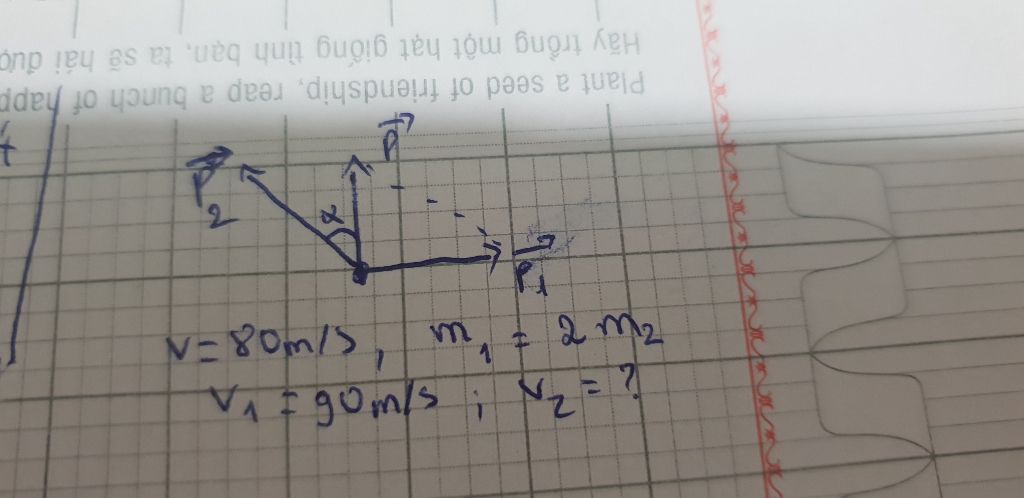 Hãy trồng một hạt giống tình bạn, ta sẽ hái
Plant a seed of friendship, reap a bunch of
P⃗
P⃗₂
α
P⃗₁
v = 80 m/s, m₁ = 2 m₂
v₁ = 90 m/s ; v₂ = ?